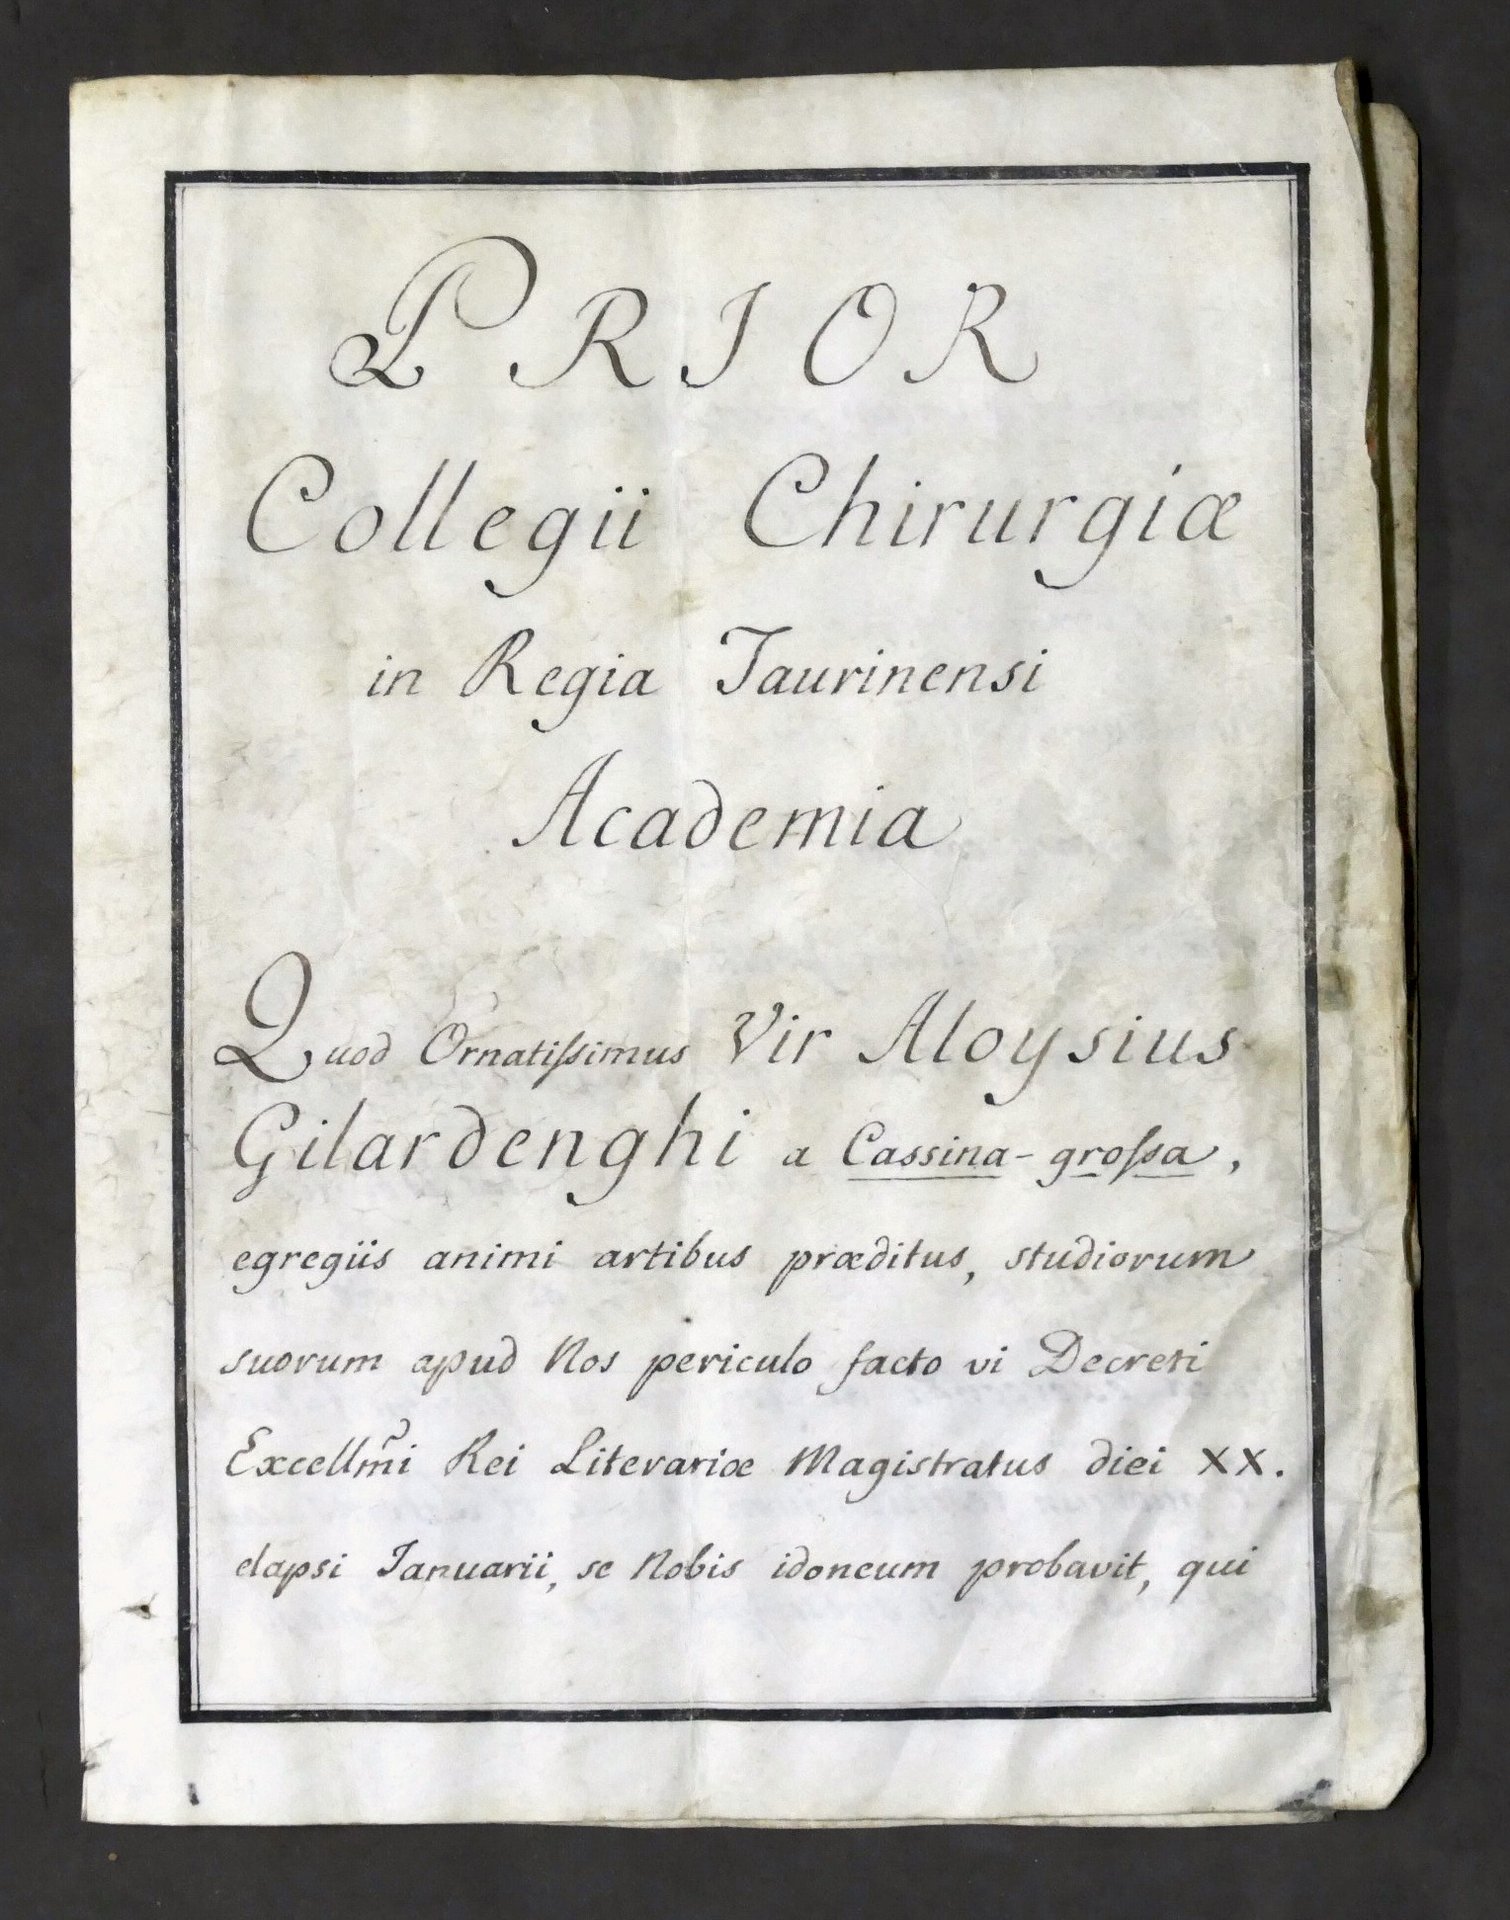 PRIOR
Collegii Chirurgiæ
in Regia Taurinensi
Academia
Quod Ornatiſsimus Vir Aloysius
Gilardenghi a Cassina-groſsa,
egregiis animi artibus præditus, studiorum
suorum apud Nos periculo facto vi Decreti
Excellm̃i Rei Literariæ Magistratus diei XX.
elapsi Ianuarii, se Nobis idoneum probavit, qui